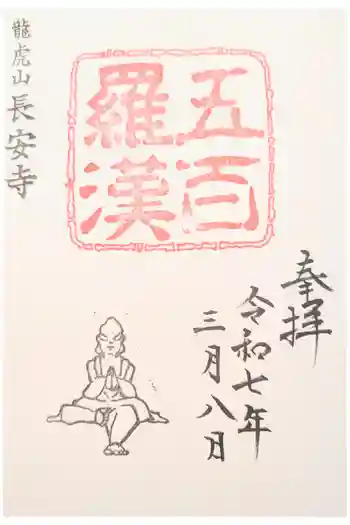 奉拝
令和七年
三月八日
五百
羅漢
龍虎山 長安寺